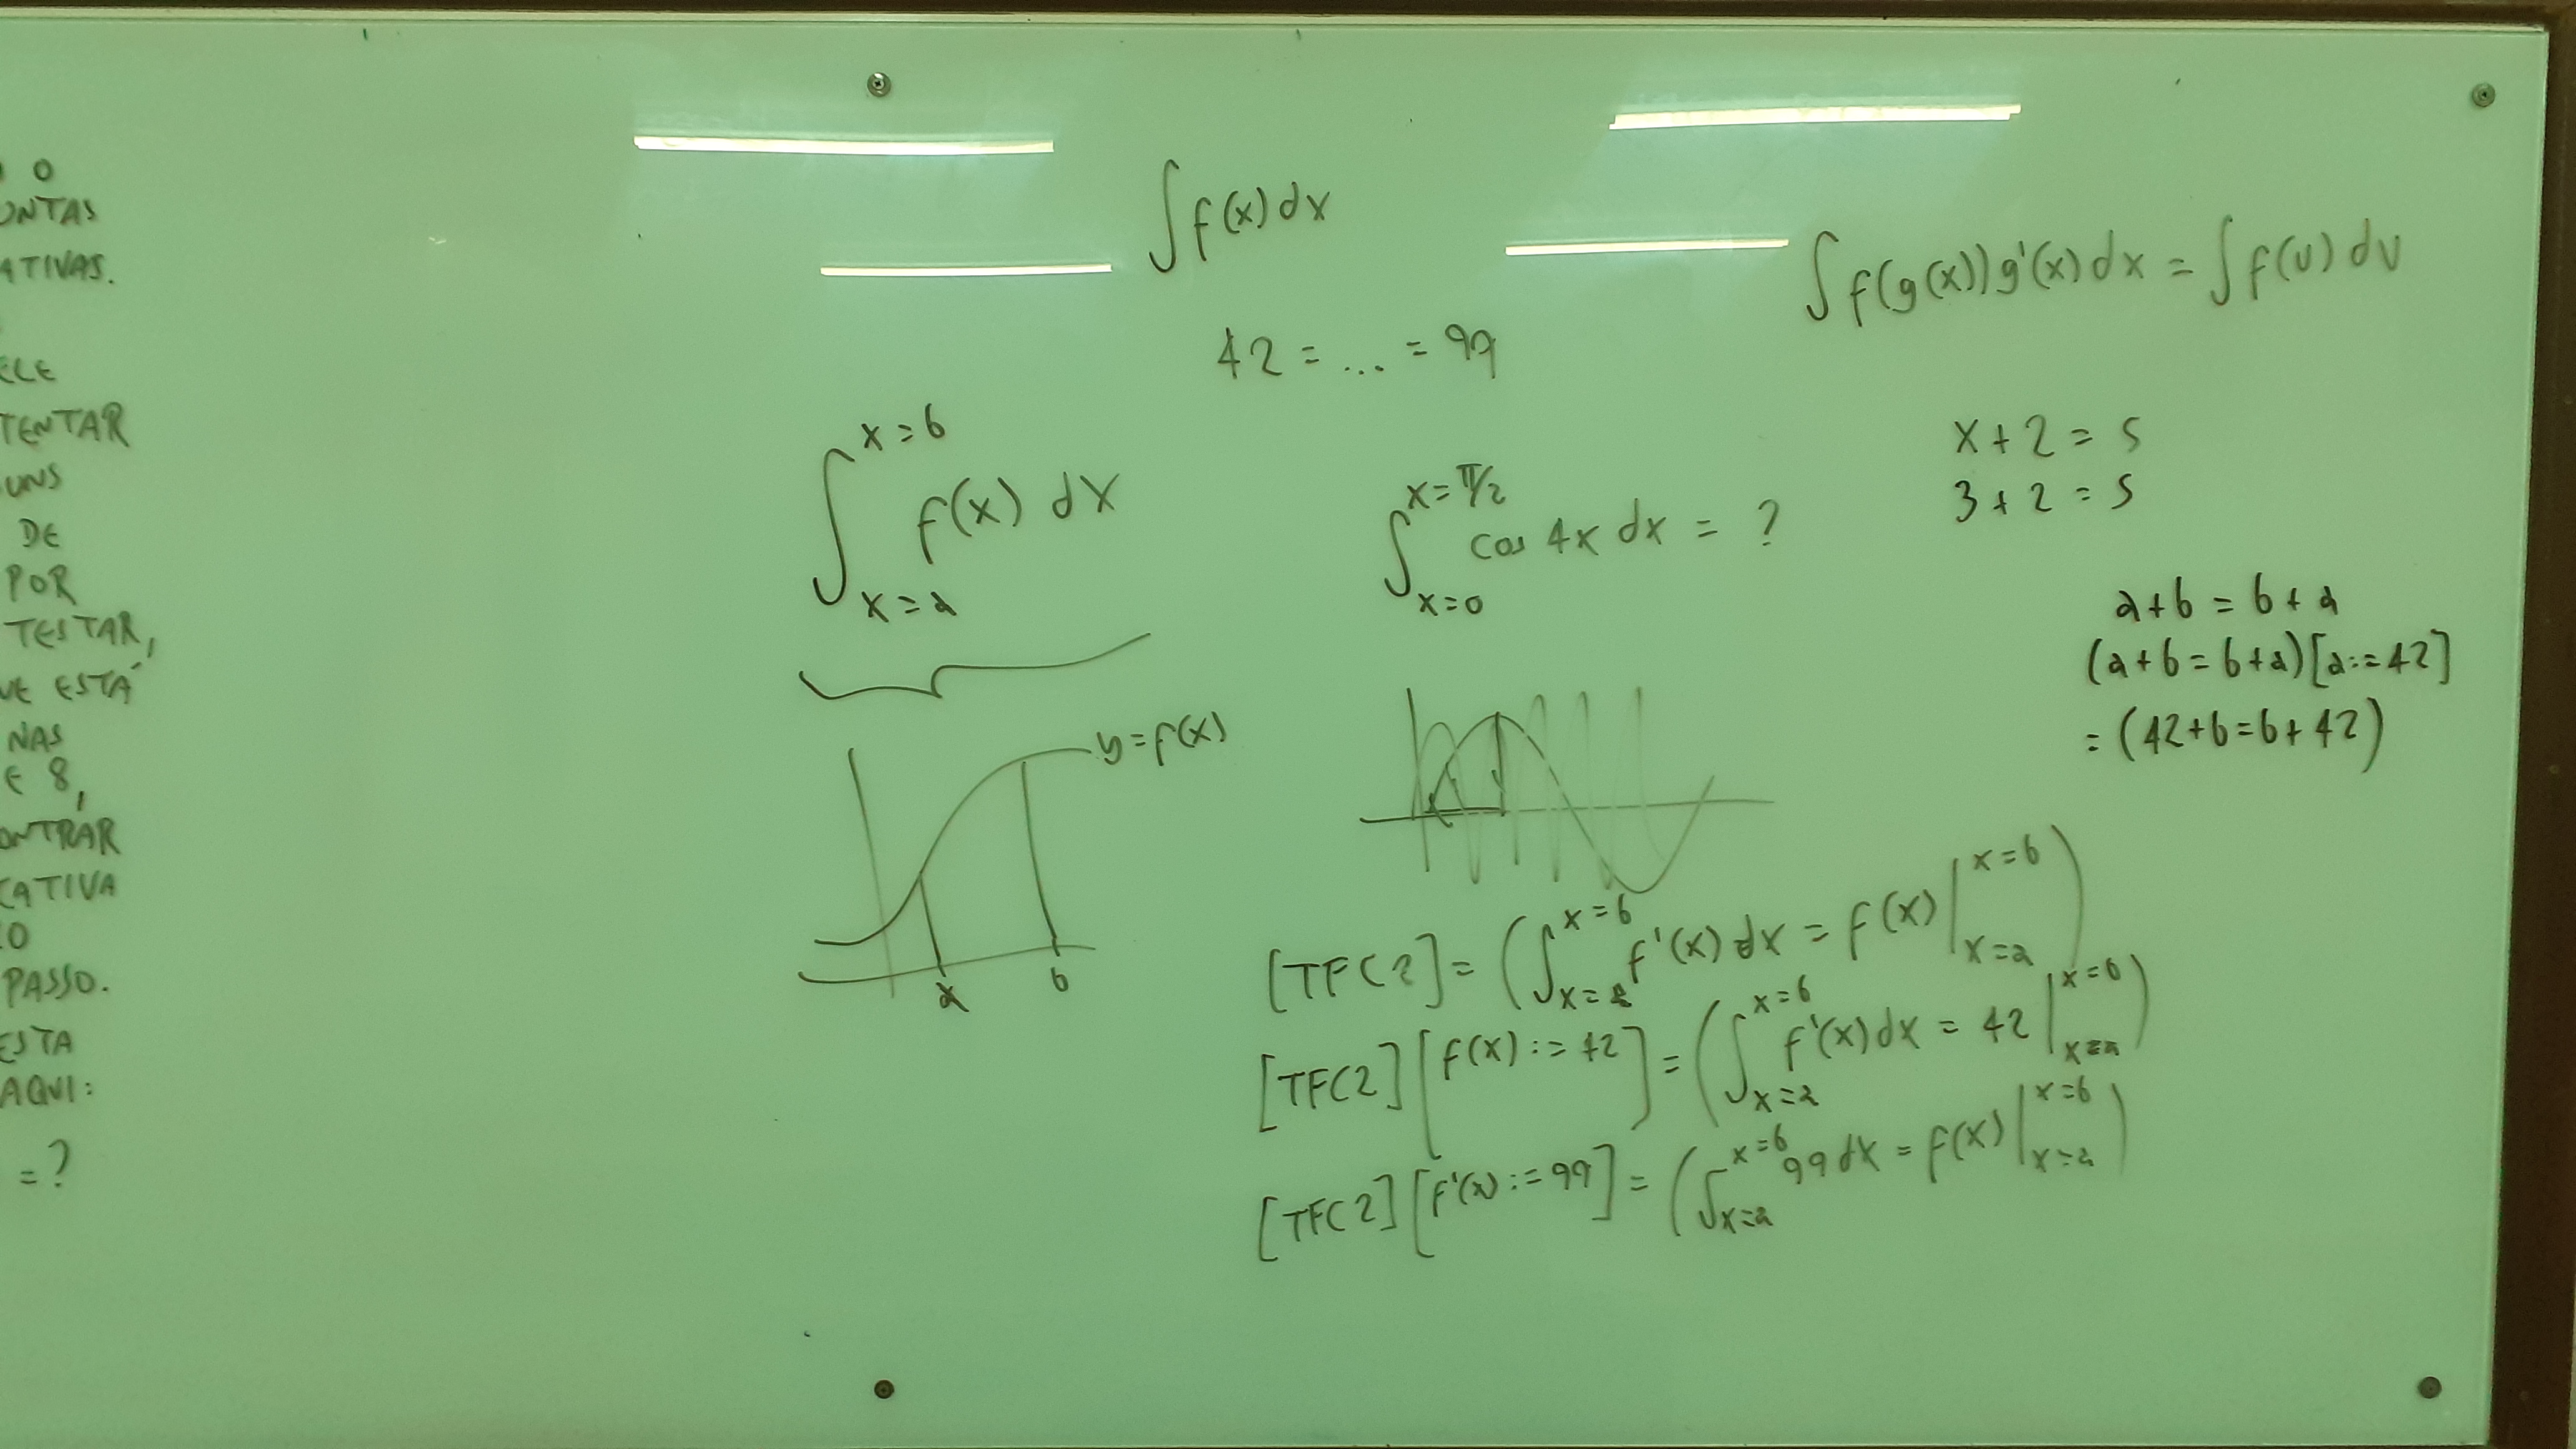 O
ONTAS
ATIVAS.
ELE
TENTAR
UNS
DE
POR
TESTAR,
UE ESTÁ
NAS
E 8,
ONTRAR
CATIVA
O
PASSO.
ESTA
AQUI:
= ?
∫ f(x) dx
42 = ... = 99
∫_{x=a}^{x=b} f(x) dx
y = f(x)
a b
∫_{x=0}^{x=π/2} cos 4x dx = ?
∫ f(g(x)) g'(x) dx = ∫ f(u) du
x + 2 = 5
3 + 2 = 5
a + b = b + a
(a + b = b + a) [a := 42]
= (42 + b = b + 42)
[TFC2] = (∫_{x=a}^{x=b} f'(x) dx = f(x) |_{x=a}^{x=b})
[TFC2] [f(x) := 42] = (∫_{x=a}^{x=b} f'(x) dx = 42 |_{x=a}^{x=b})
[TFC2] [f'(x) := 99] = (∫_{x=a}^{x=b} 99 dx = f(x) |_{x=a}^{x=b})